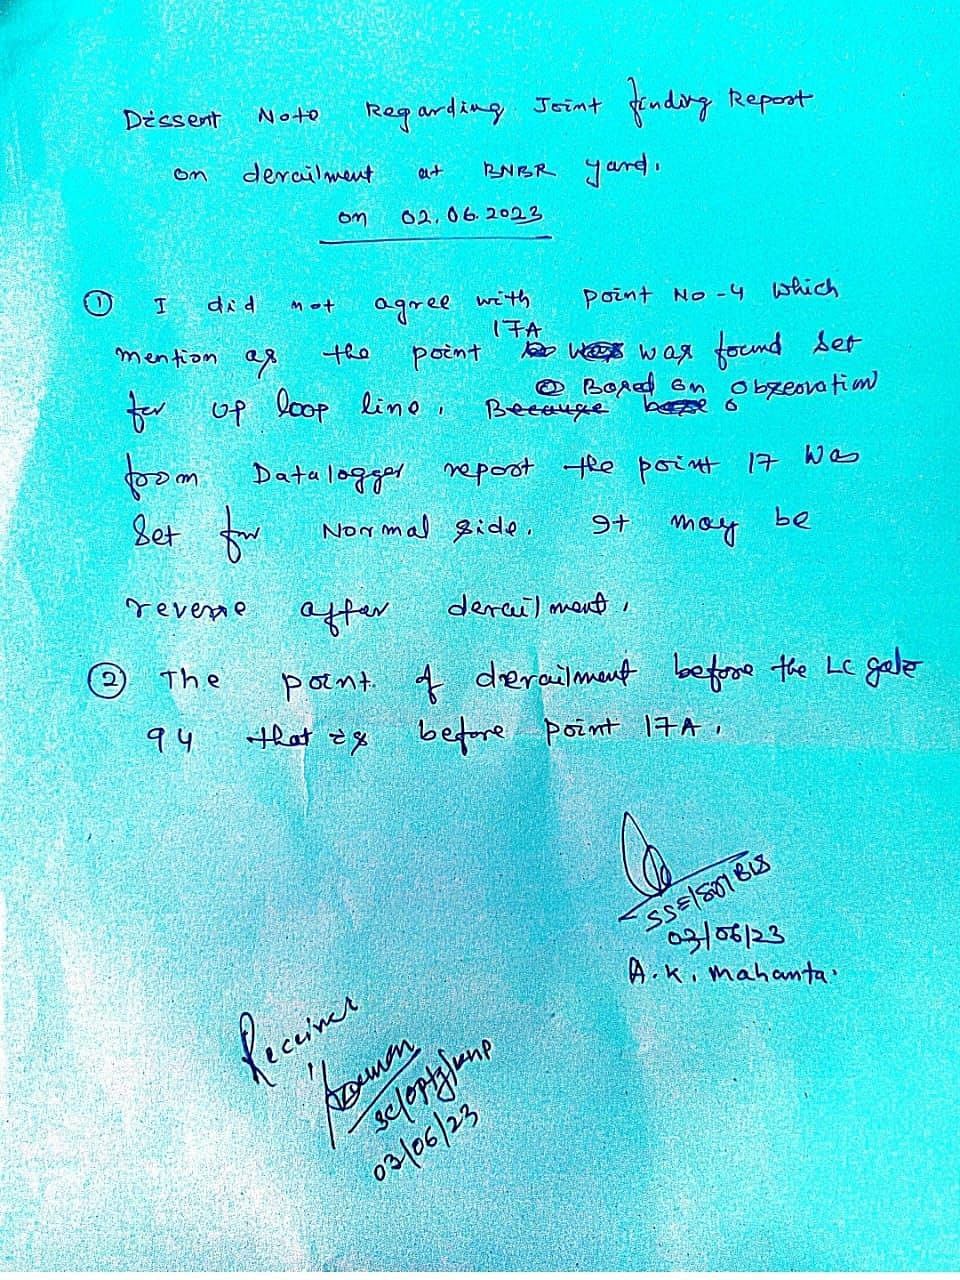 Dissent Note Regarding Joint finding Report
on derailment at BNBR yard.
on 02.06.2023
① I did not agree with point No-4 which
17A
mention as the point was found set
for up loop line. Based on observation
from Datalogger report the point 17 was
set for Normal side. It may be
reverse after derailment.
② The point of derailment before the LC gate
94 that is before point 17A.
SSE/Sig/BLS
03/06/23
A.K. Mahanta.
Received
03/06/23